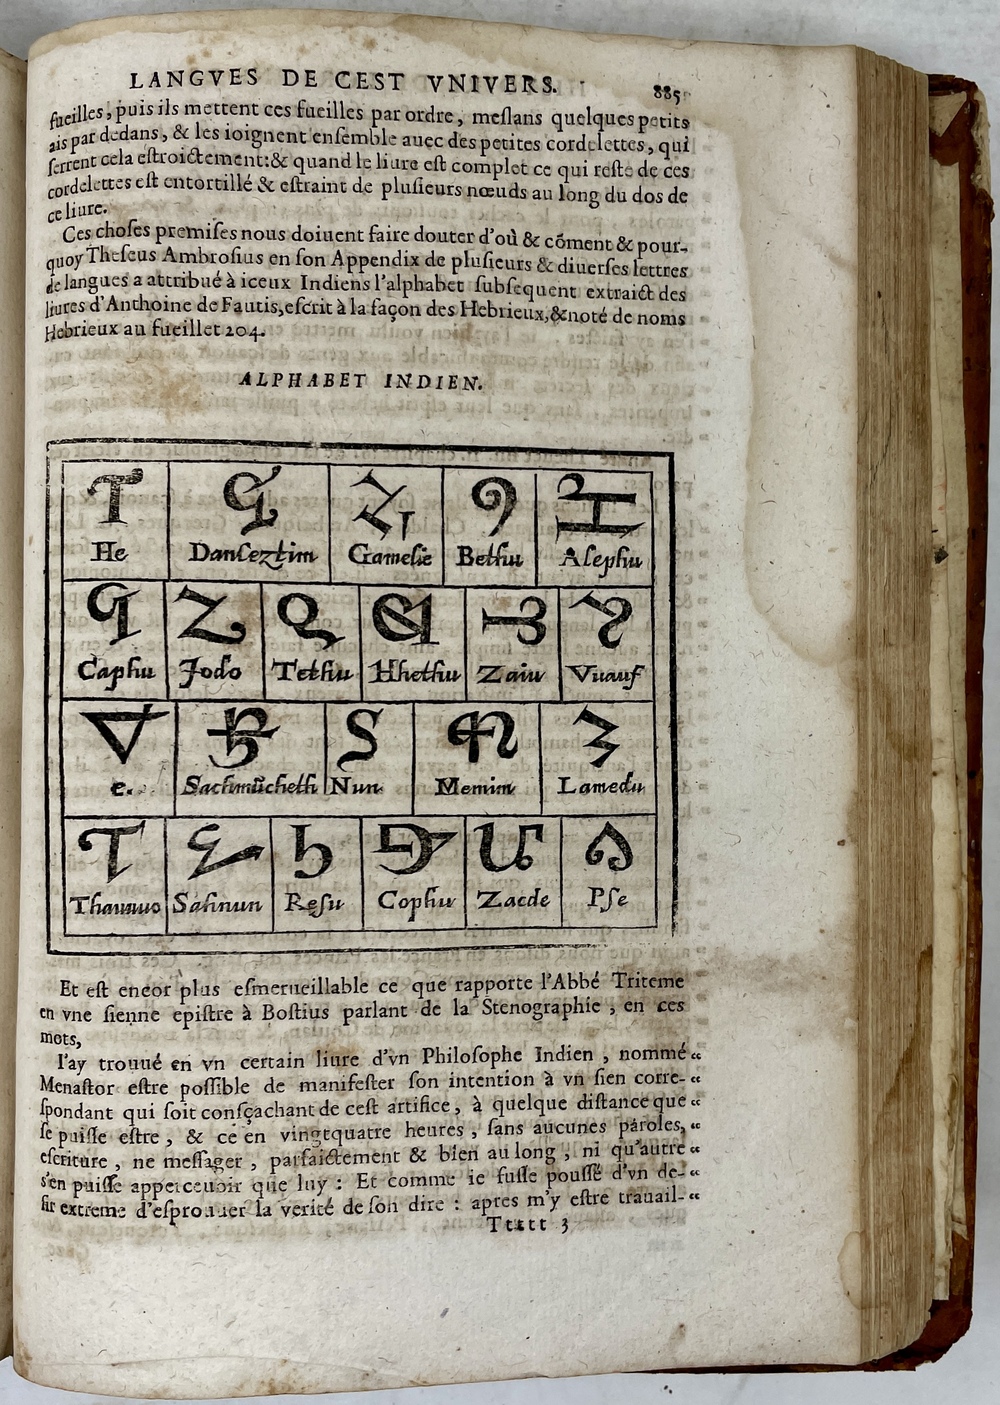 LANGVES DE CEST VNIVERS. 885
fueilles, puis ils mettent ces fueilles par ordre, meſlans quelques petits
ais par dedans, & les ioignent enſemble auec des petites cordelettes, qui
ſerrent cela eſtroictement: & quand le liure eſt complet ce qui reſte de ces
cordelettes eſt entortillé & eſtraint de pluſieurs nœuds au long du dos de
ce liure.
Ces choſes premiſes nous doiuent faire douter d'où & cõment & pour-
quoy Theſeus Ambroſius en ſon Appendix de pluſieurs & diuerſes lettres
de langues a attribué à iceux Indiens l'alphabet ſubſequent extraict des
liures d'Anthoine de Fautis, eſcrit à la façon des Hebrieux, & noté de noms
Hebrieux au fueillet 204.
ALPHABET INDIEN.
He Danſeztim Gamelie Bethu Alephu
Caphu Jodo Tethu Hhethu Zaiu Vuauf
e. Sachmũcheth Nun Memim Lamedu
Thauuuo Sahnun Reſu Cophu Zacde Pſe
Et eſt encor plus eſmerueillable ce que rapporte l'Abbé Triteme
en vne ſienne epiſtre à Boſtius parlant de la Stenographie, en ces
mots,
I'ay trouué en vn certain liure d'vn Philoſophe Indien, nommé “
Menaſtor eſtre poſſible de manifeſter ſon intention à vn ſien corre- “
ſpondant qui ſoit conſçachant de ceſt artifice, à quelque diſtance que “
ſe puiſſe eſtre, & ce en vingtquatre heures, ſans aucunes paroles, “
eſcriture, ne meſſager, parfaictement & bien au long, ni qu'autre “
s'en puiſſe apperceuoir que luy: Et comme ie fuſſe pouſſé d'vn de- “
ſir extreme d'eſprouuer la verité de ſon dire: apres m'y eſtre trauail- “
Ttttt 3